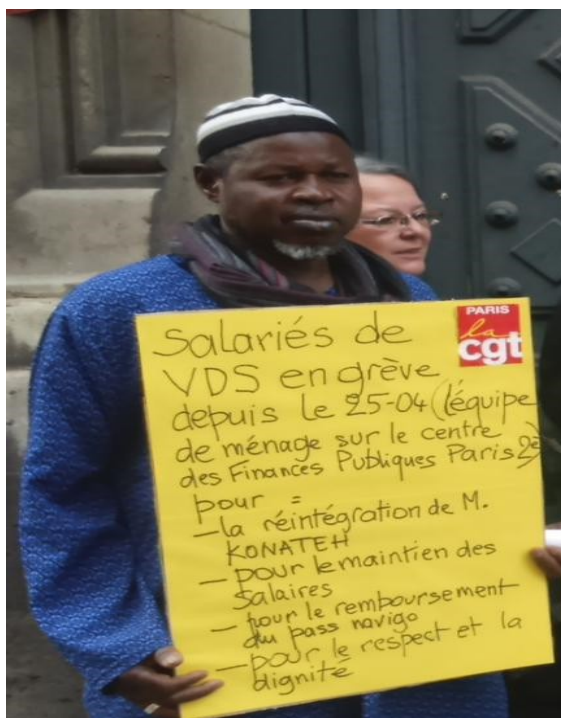 PARIS
la
cgt
Salariés de
VDS en grève
depuis le 25-04 (l'équipe
de ménage sur le centre
des Finances Publiques Paris 2è)
pour =
- la réintégration de M.
KONATEH
- pour le maintien des
Salaires
- pour le remboursement
du pass navigo
- pour le respect et la
dignité